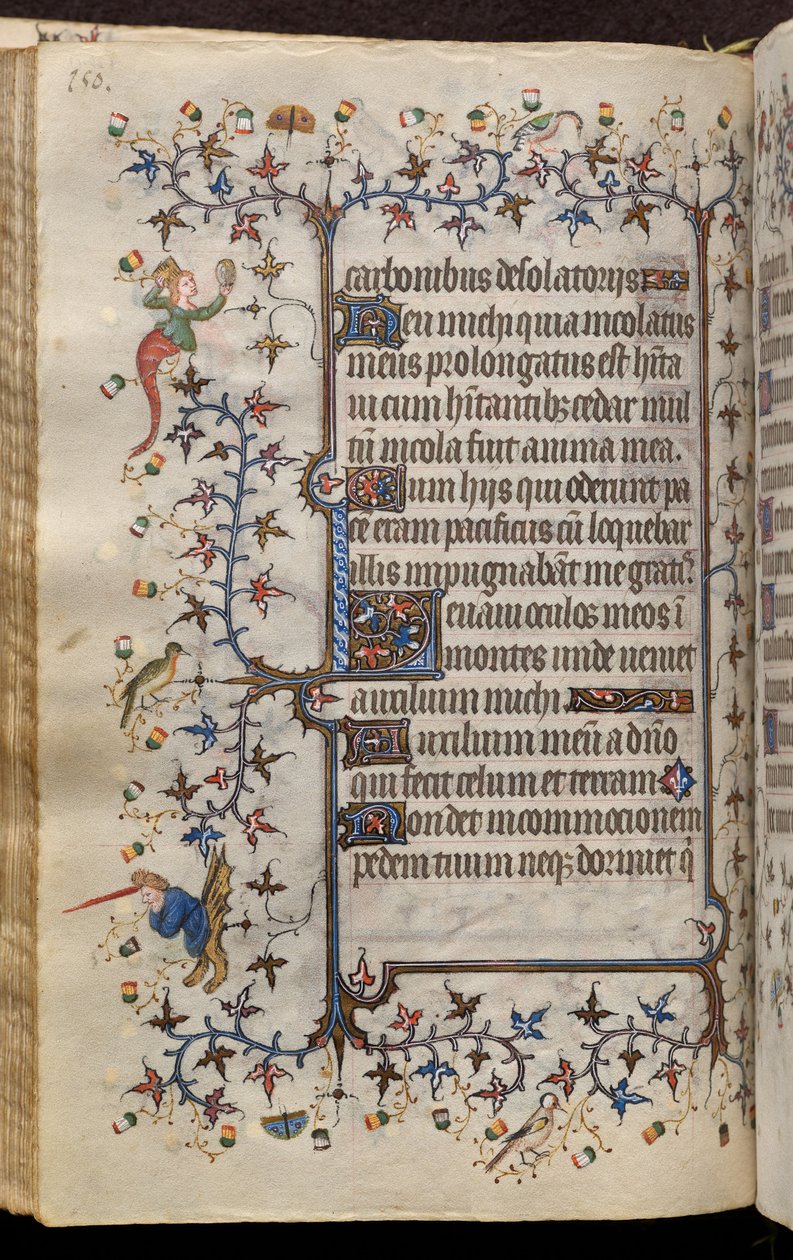 150.
carbonibus desolatorijs
Heu michi quia incolatus
meus prolongatus est hita
ui cum hitantibꝫ cedar mul
tū incola fuit anima mea.
Cum hijs qui oderunt pa
cē eram pacificus cū loquebar
illis impugnabāt me gratis.
Leuaui oculos meos ī
montes unde ueniet
auxilium michi.
Auxilium meū a dn̄o
qui fecit celum et terram
Non det in commocionem
pedem tuum neqꝫ dormiet q̄